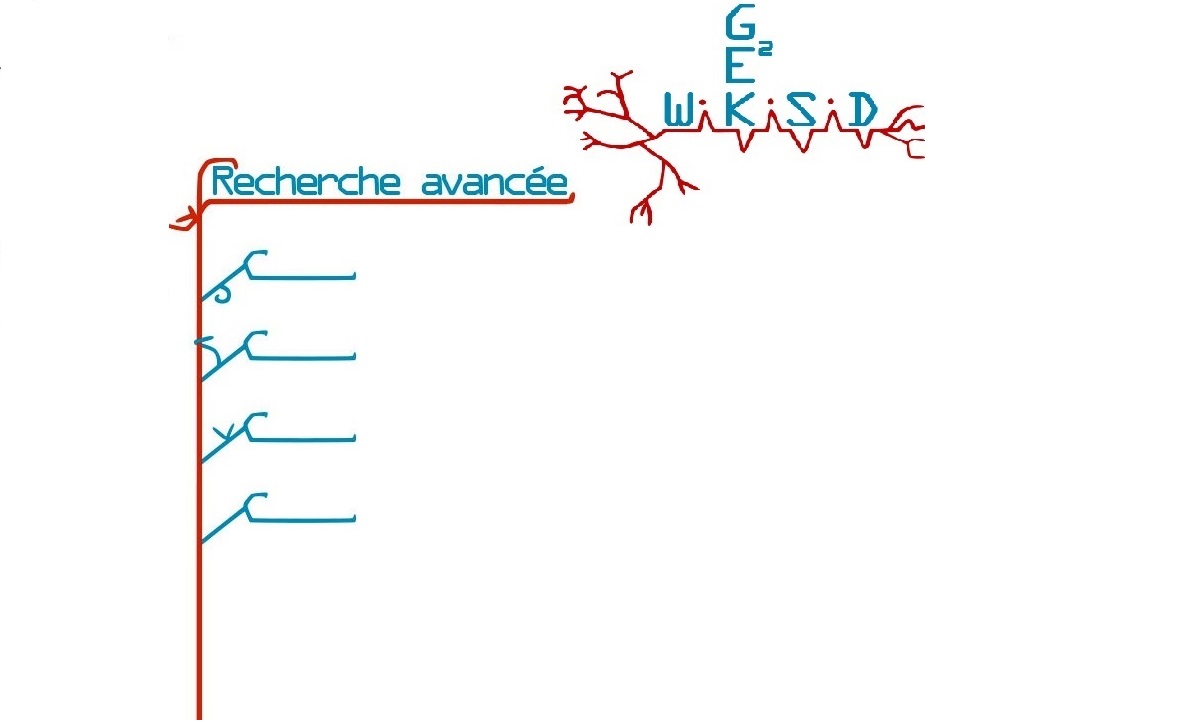 G²
E
WiKiSiD
Recherche avancée